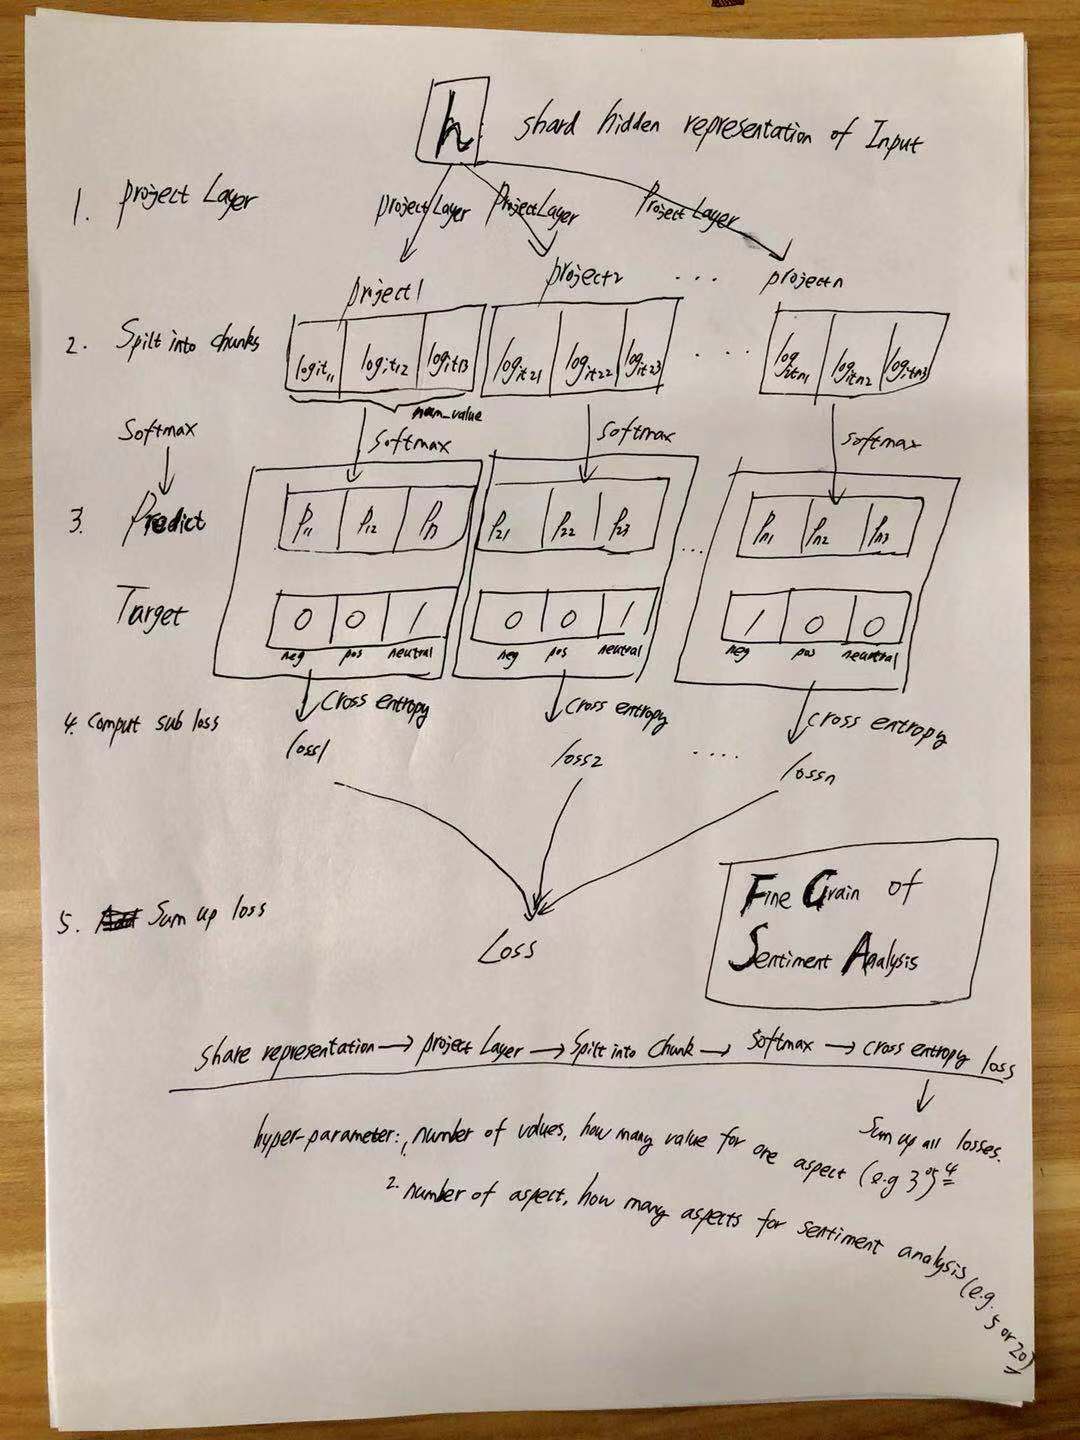 h shard hidden representation of Input
1. project Layer
project Layer Project Layer Project Layer
project1 project2 .... projectn
2. Spilt into chunks
logit11 logit12 logit13 logit21 logit22 logit23 .... logitn1 logitn2 logitn3
num_value
Softmax softmax softmax softmax
3. Predict P11 P12 P13 P21 P22 P23 ... Pn1 Pn2 Pn3
Target 0 0 1 0 0 1 1 0 0
neg pos neutral neg pos neutral neg pos neutral
cross entropy cross entropy cross entropy
4. Comput sub loss
loss1 loss2 .... lossn
5. Sum up loss
Loss
Fine Grain of
Sentiment Analysis
share representation → project Layer → Spilt into chunk → Softmax → cross entropy loss
Sum up all losses.
hyper-parameter: 1. number of values, how many value for one aspect (e.g 3 or 4)
2. number of aspect, how many aspects for sentiment analysis (e.g. 5 or 20)